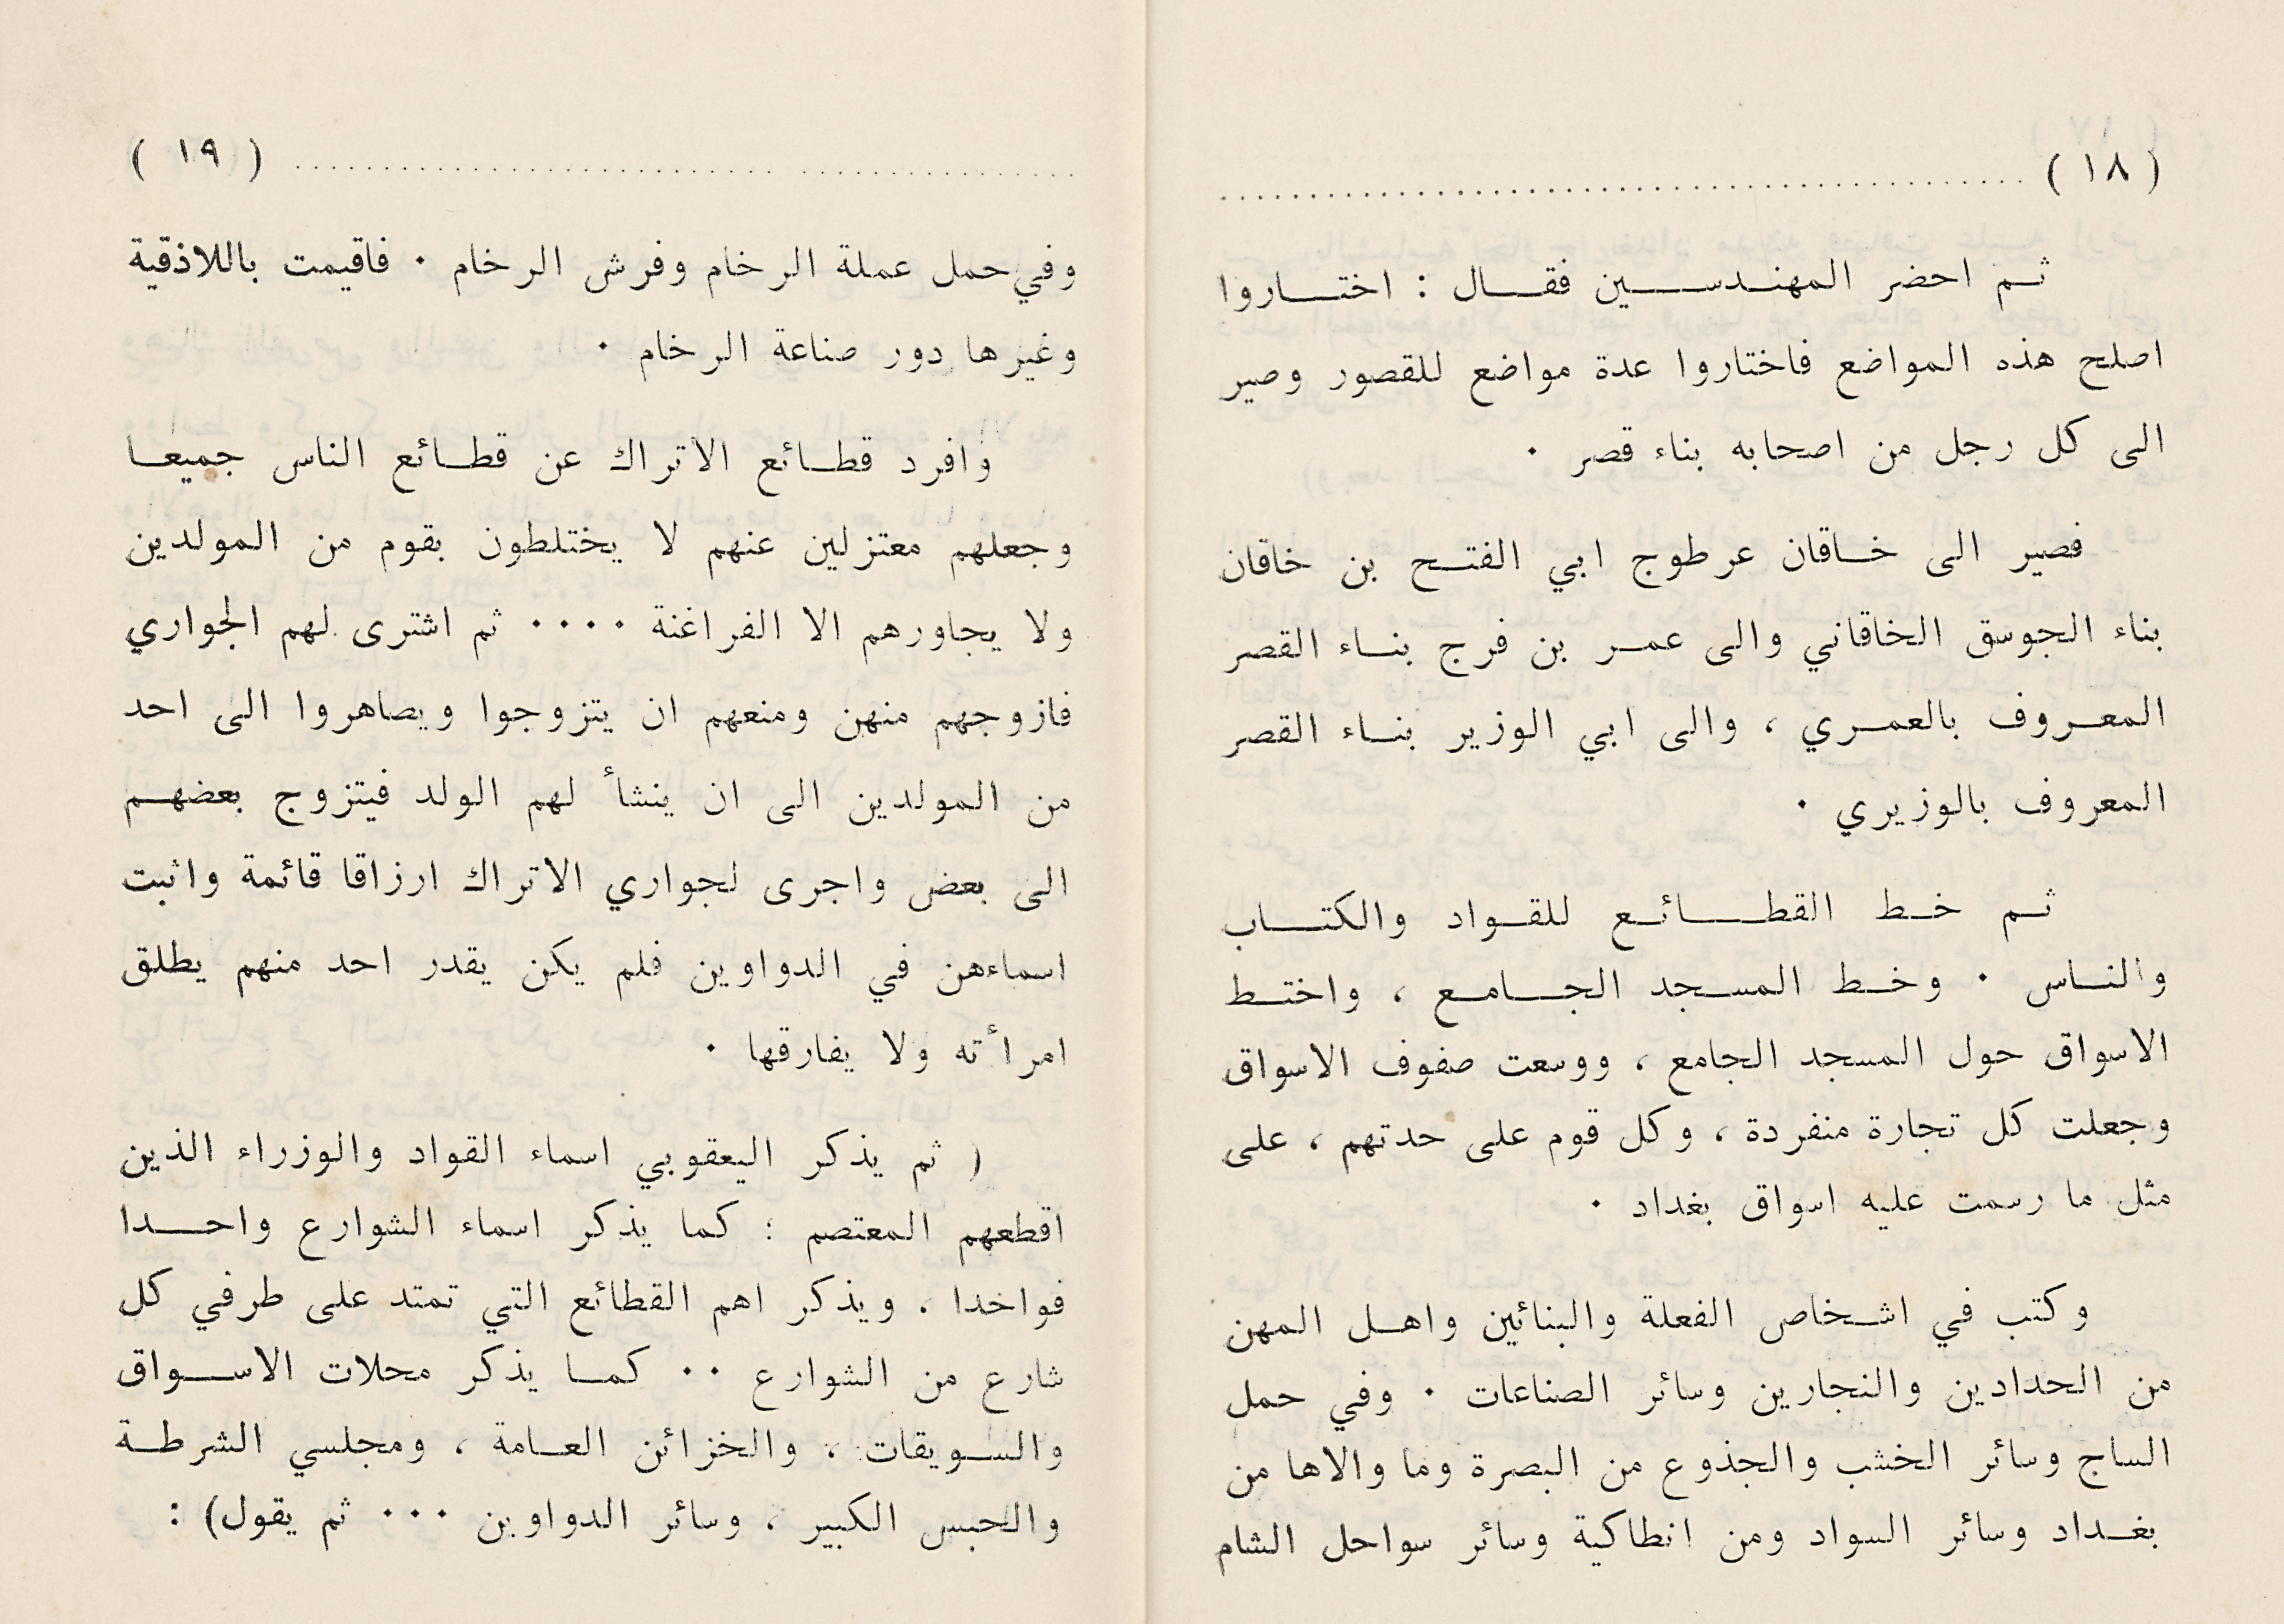 ( ١٨ )
ثم احضر المهندسين فقال : اختاروا
اصلح هذه المواضع فاختاروا عدة مواضع للقصور وصير
الى كل رجل من اصحابه بناء قصر ٠
فصير الى خاقان عرطوج ابي الفتح بن خاقان
بناء الجوسق الخاقاني والى عمر بن فرج بناء القصر
المعروف بالعمري ، والى ابي الوزير بناء القصر
المعروف بالوزيري ٠
ثم خط القطائع للقواد والكتاب
والناس ٠ وخط المسجد الجامع ، واختط
الاسواق حول المسجد الجامع ، ووسعت صفوف الاسواق
وجعلت كل تجارة منفردة ، وكل قوم على حدتهم ، على
مثل ما رسمت عليه اسواق بغداد ٠
وكتب في اشخاص الفعلة والبنائين واهل المهن
من الحدادين والنجارين وسائر الصناعات ٠ وفي حمل
الساج وسائر الخشب والجذوع من البصرة وما والاها من
بغداد وسائر السواد ومن انطاكية وسائر سواحل الشام
( ١٩ )
وفي حمل عملة الرخام وفرش الرخام ٠ فاقيمت باللاذقية
وغيرها دور صناعة الرخام ٠
وافرد قطائع الاتراك عن قطائع الناس جميعا
وجعلهم معتزلين عنهم لا يختلطون بقوم من المولدين
ولا يجاورهم الا الفراغنة ٠٠٠٠ ثم اشترى لهم الجواري
فازوجهم منهن ومنعهم ان يتزوجوا ويصاهروا الى احد
من المولدين الى ان ينشأ لهم الولد فيتزوج بعضهم
الى بعض واجرى لجواري الاتراك ارزاقا قائمة واثبت
اسماءهن في الدواوين فلم يكن يقدر احد منهم يطلق
امرأته ولا يفارقها ٠
( ثم يذكر اليعقوبي اسماء القواد والوزراء الذين
اقطعهم المعتصم ؛ كما يذكر اسماء الشوارع واحدا
فواحدا ، ويذكر اهم القطائع التي تمتد على طرفي كل
شارع من الشوارع ٠٠ كما يذكر محلات الاسواق
والسويقات ، والخزائن العامة ، ومجلسي الشرطة
والحبس الكبير ، وسائر الدواوين ٠٠٠ ثم يقول) :